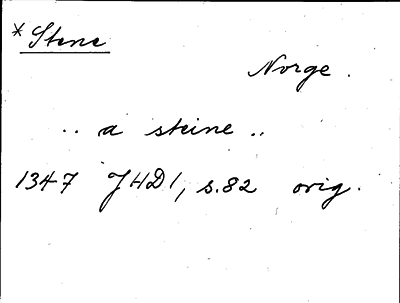 *Stene
Norge.
.. a steine ..
1347 JHD1, s.82 orig.